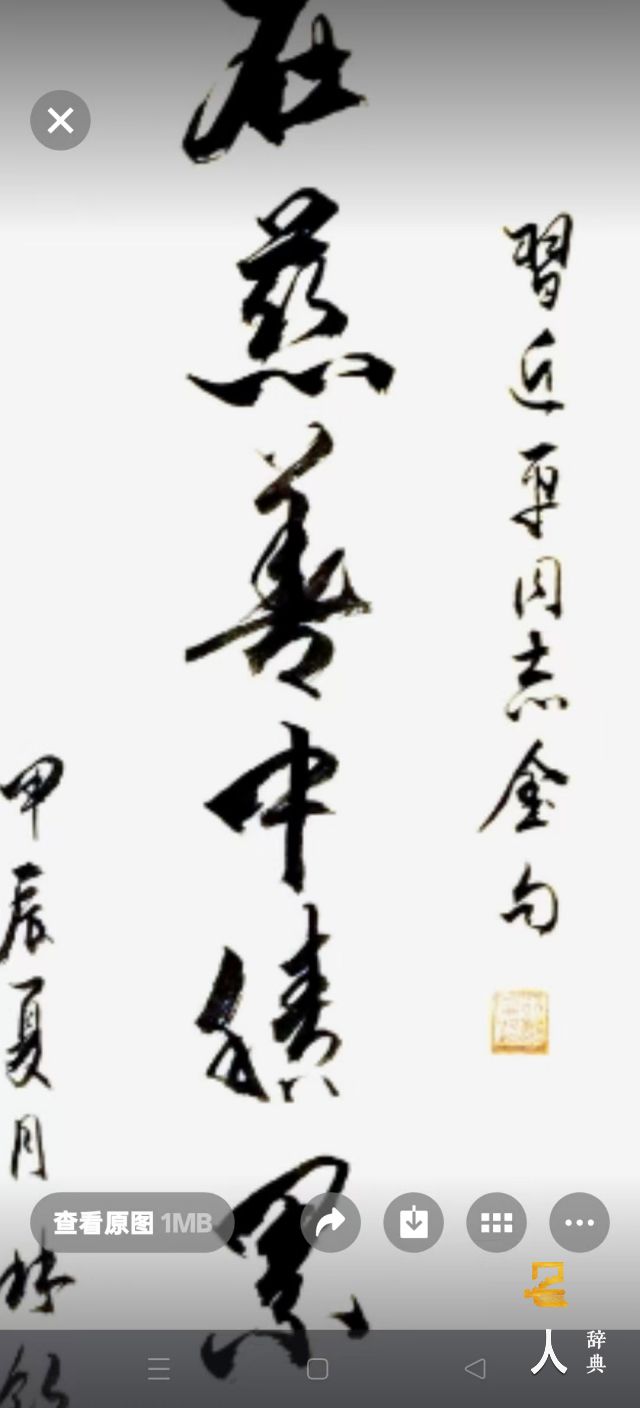 習近平同志金句
在慈善中積累
甲辰夏月
查看原图 1MB
名人辞典